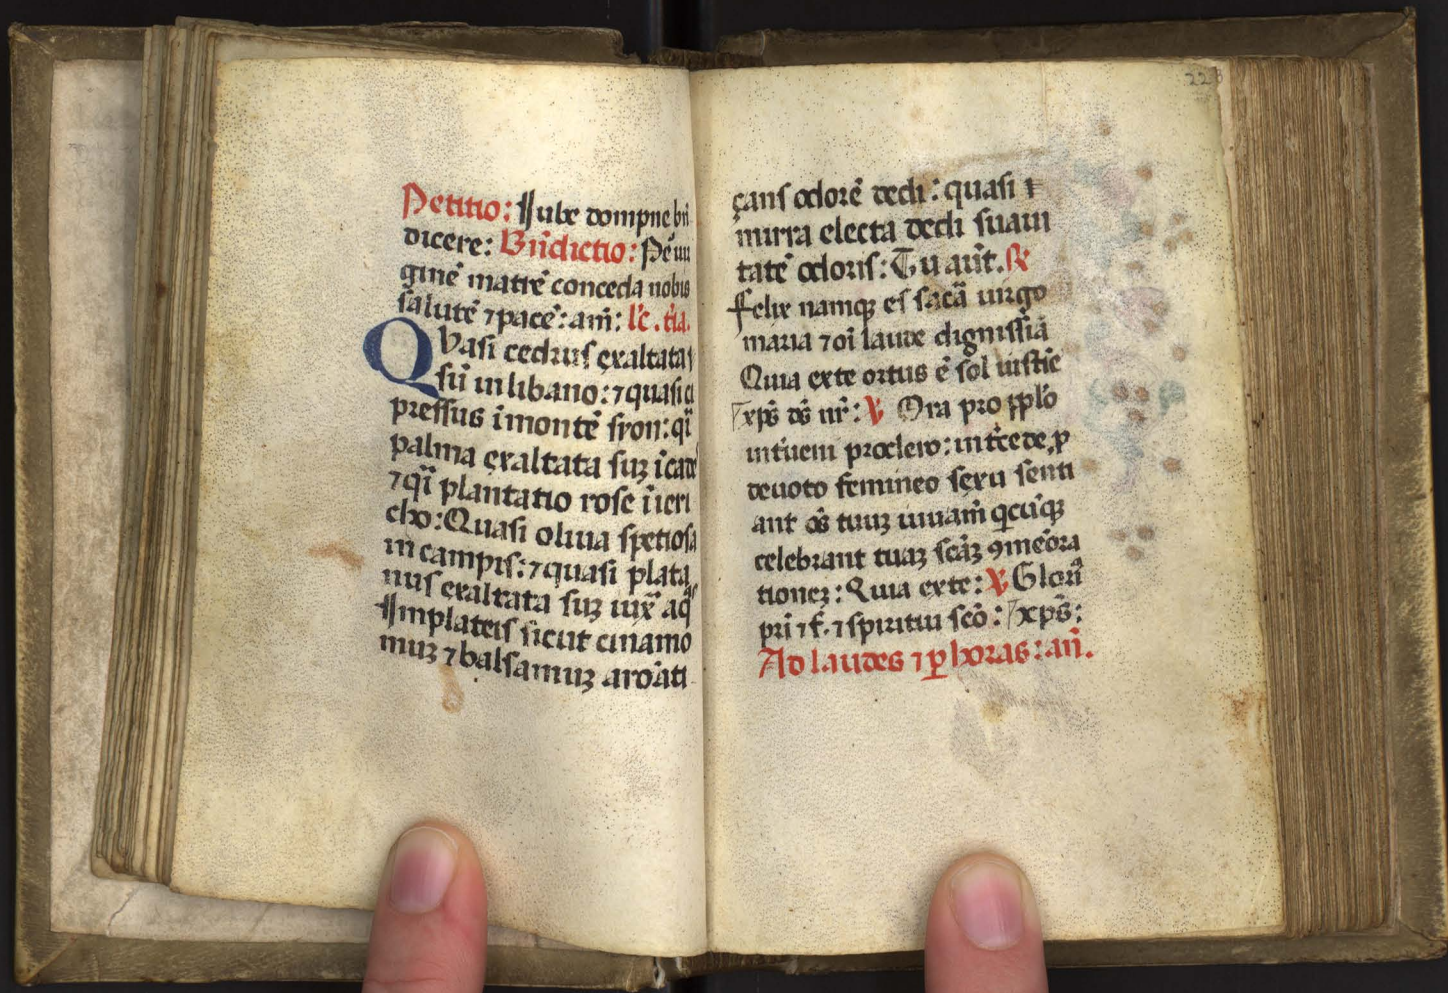 Petitio: Iube dompne bñ
dicere: Bñdictio: Pe uir
ginē matrē conceda nobis
salutē ⁊ pacē: am̄: lc̄. tia.
QVasi cedrus exaltata
sū in libano: ⁊ quasi ci
pressus ī monte syon: qī
palma exaltata suꝫ ī cade
⁊ qī plantatio rose ī ieri
cho: Quasi oliua spetiosa
in campis: ⁊ quasi plata
nus exaltata suꝫ iux̄ aq̄s
In plateis sicut cinamo
muꝫ ⁊ balsamuꝫ aroāti
çans odorē dedi: quasi
mirra electa dedi suaui
tatē odoris: Tu aūt. ℟
Felix namqꝫ es sacā uirgo
maria ⁊ oī laude dignissīa
Quia exte ortus ē sol iustīe
xp̄s ds̄ nr̄: ℣ Ora pro pplō
int̄ueni pro clero: int̄cede ꝓ
deuoto femineo sexu senti
ant oēs tuuꝫ iuuam̄ qcūqꝫ
celebrant tuaꝫ scāꝫ ꝯmeōra
tioneꝫ: Quia exte: ℣ Glorī
pri ⁊ f. ⁊ spiritui scō: xp̄s:
Ad laudes ⁊ ꝑ horas: an̄.
223